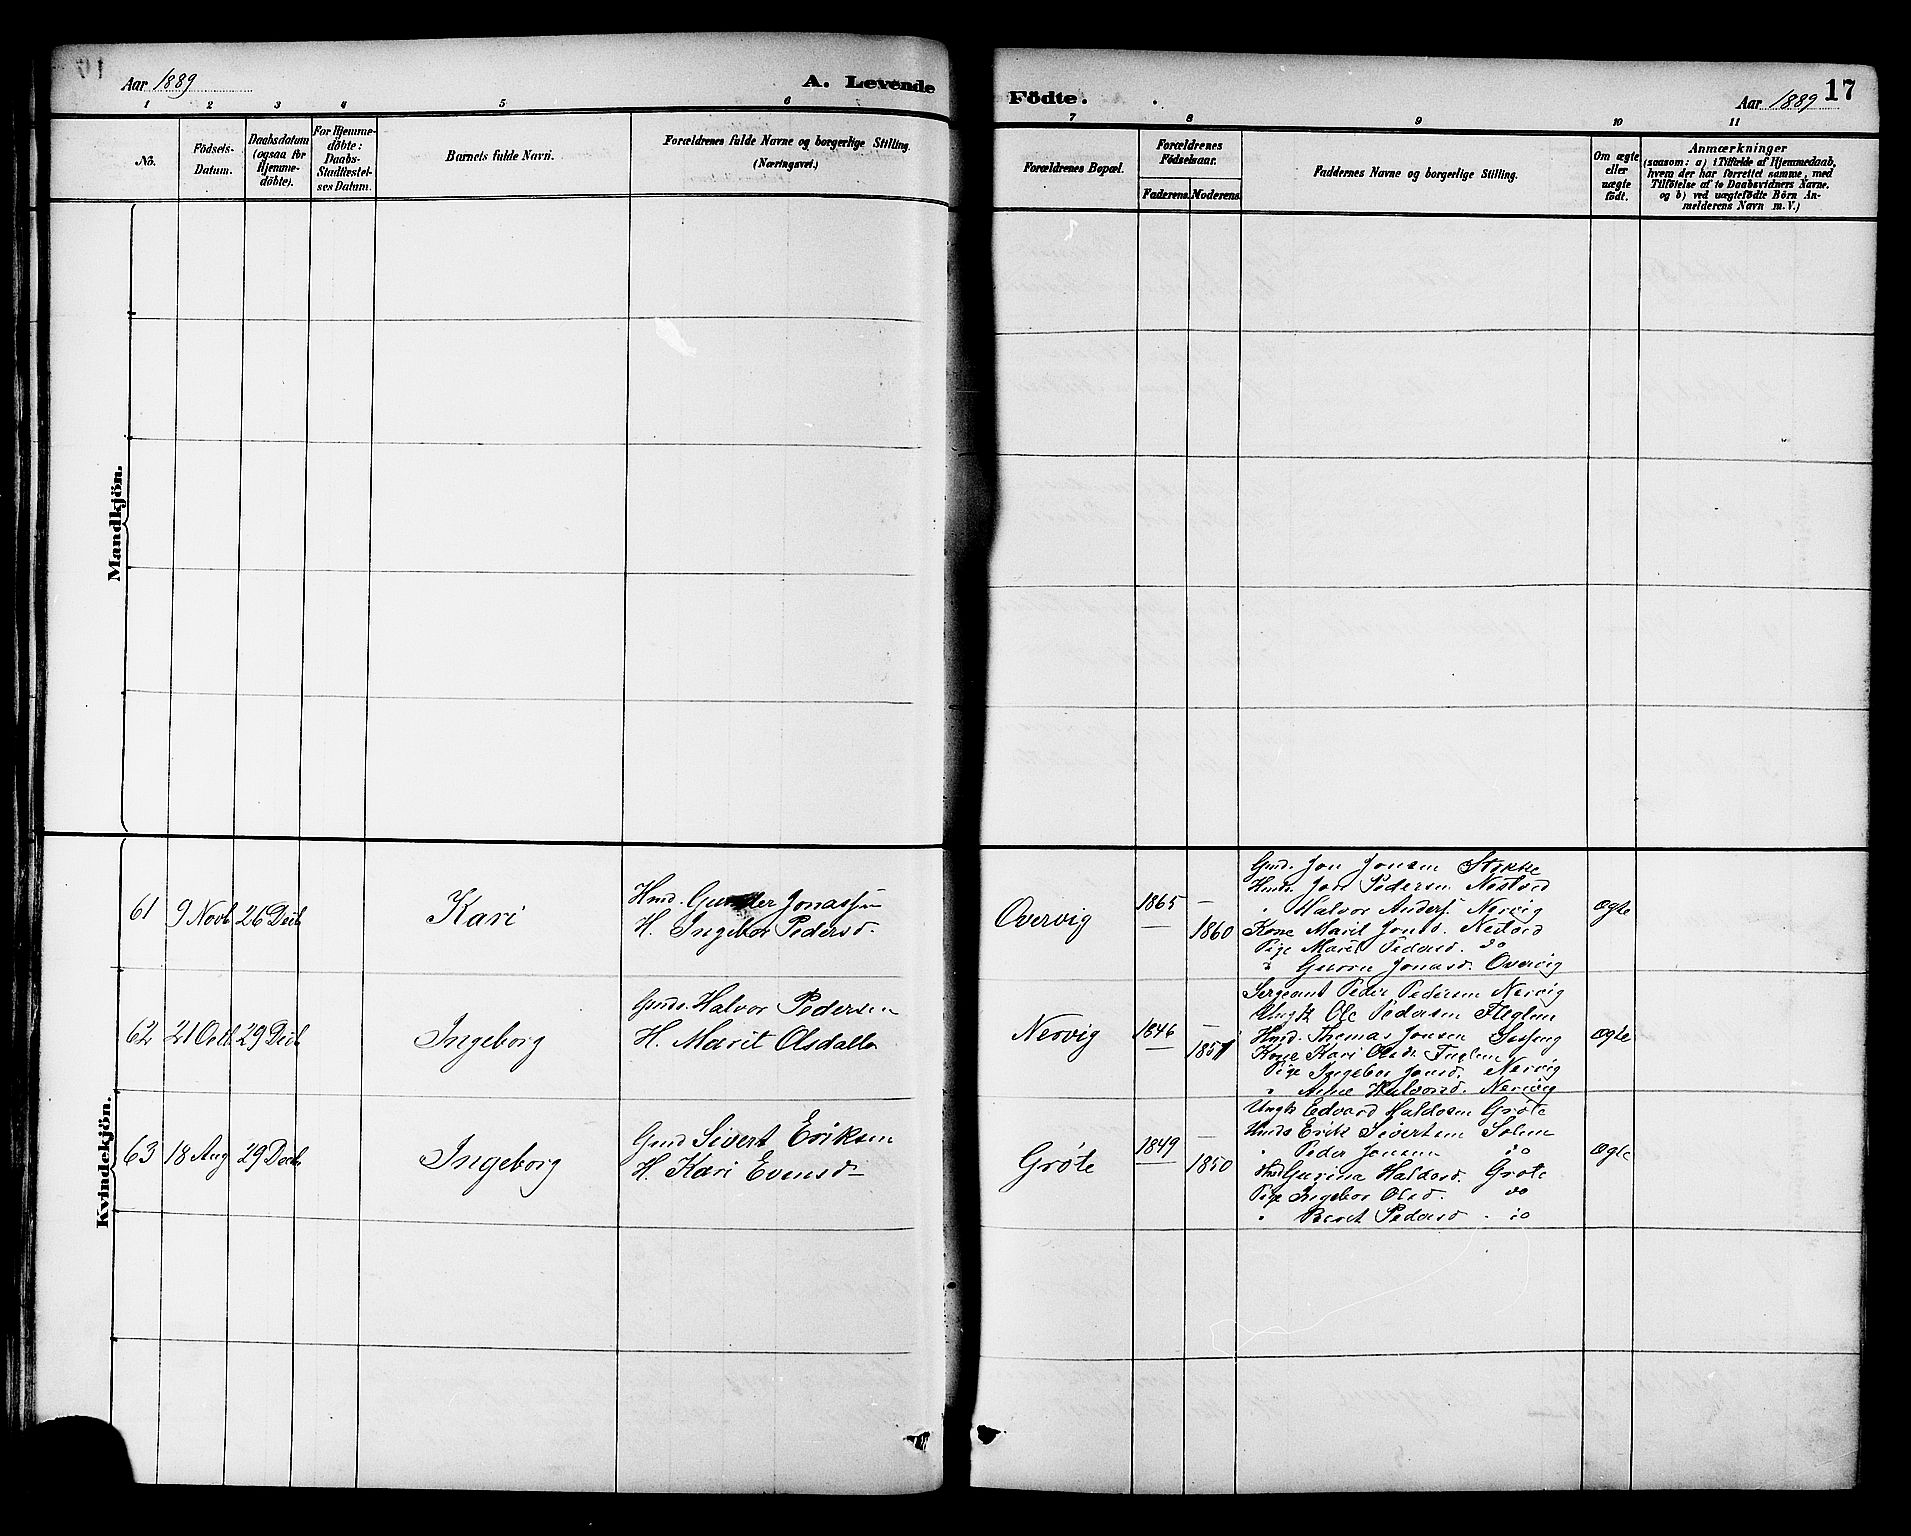 Aar 1889
A. Levende
Födte.
Aar 1889
17
1 2 3 4 5 6 7 8 9 10 11
No.
Födsels-
Datum.
Daabsdatum
(ogsaa for
Hjemme-
döbte).
For Hjemme-
döbte:
Daabs-
Stadfæstel-
ses Datum.
Barnets fulde Navn.
Forældrenes fulde Navne og borgerlige Stilling.
(Næringsvei.)
Forældrenes Bopæl.
Forældrenes
Födselsaar.
Faderens. Moderens.
Faddernes Navne og borgerlige Stilling.
Om ægte
eller
uægte
födt.
Anmærkninger
(saasom: a) i Tilfælde af Hjemmedaab,
hvem der har forrettet samme, med
Tilföielse af to Daabsvidners Navne,
og b) ved uægtefödte Börn An-
melderens Navn m. V.)
Mandkjön.
Kvindekjön.
61 9 Novb. 26 Decb. Kari
Hmd. Gunder Jonassen
H. Ingebor Pedersd.
Overvig
1865 —
— 1860
Gmd. Jon Jonsen Stokke
Hmd. Jon Pedersen Nestvod
" Halvor Anders. Nervig
Kone Marit Jonsd. Nestvod
Pige Marit Pedersd. do
" Guru Jonasd. Overvig
ægte
62 21 Octb. 29 Decb. Ingeborg
Gmd. Halvor Pedersen
H. Marit Olsdatter
Nervig
1846 —
— 1851
Sergeant Peder Pedersen Nervig
Ungk Ole Pedersen Fuglem
Hmd. Thomas Jonsen
Kone Kari Olsd. Fuglem
Pige Ingebor Jonsd. Nervig
" Anne Halvorsd. Nervig
ægte
63 18 Aug 29 Decb. Ingeborg
Gmd Sivert Eriksen
H. Kari Evensd.
Gröte
1849 —
— 1850
Ungk Edvard Haldosen Gröte
Hmd. Erik Sivertsen Solem
" Peder Jonsen do
Gurina Haldosd. Gröte
Pige Ingebor Olsd. do
" Beret Pedersd. do
ægte